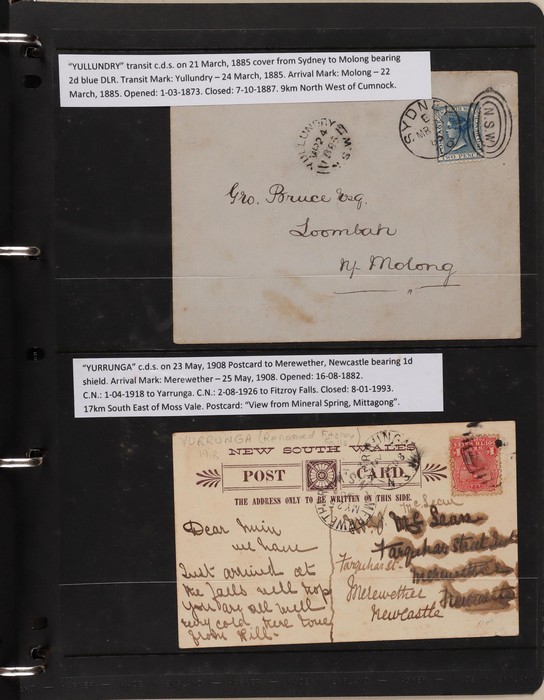 "YULLUNDRY" transit c.d.s. on 21 March, 1885 cover from Sydney to Molong bearing
2d blue DLR. Transit Mark: Yullundry – 24 March, 1885. Arrival Mark: Molong – 22
March, 1885. Opened: 1-03-1873. Closed: 7-10-1887. 9km North West of Cumnock.
YULLUNDRY N.S.W
SYDNEY
N.S.W
TWO PENCE
Geo. Bruce Esq.
Loombah
Nr Molong
"YURRUNGA" c.d.s. on 23 May, 1908 Postcard to Merewether, Newcastle bearing 1d
shield. Arrival Mark: Merewether – 25 May, 1908. Opened: 16-08-1882.
C.N.: 1-04-1918 to Yarrunga. C.N.: 2-08-1926 to Fitzroy Falls. Closed: 8-01-1993.
17km South East of Moss Vale. Postcard: "View from Mineral Spring, Mittagong".
YURRUNGA (Renamed Fitzroy
NEW SOUTH WALES
POST CARD
THE ADDRESS ONLY TO BE WRITTEN ON THIS SIDE.
MEREWETHER
Dear
we have
Just arrived at
the Falls well hop
you are all well
very cold here love
from Kill.
McLean
Farquhar Street
Merewether
Newcastle
Farquhar St.
Merewether
Newcastle